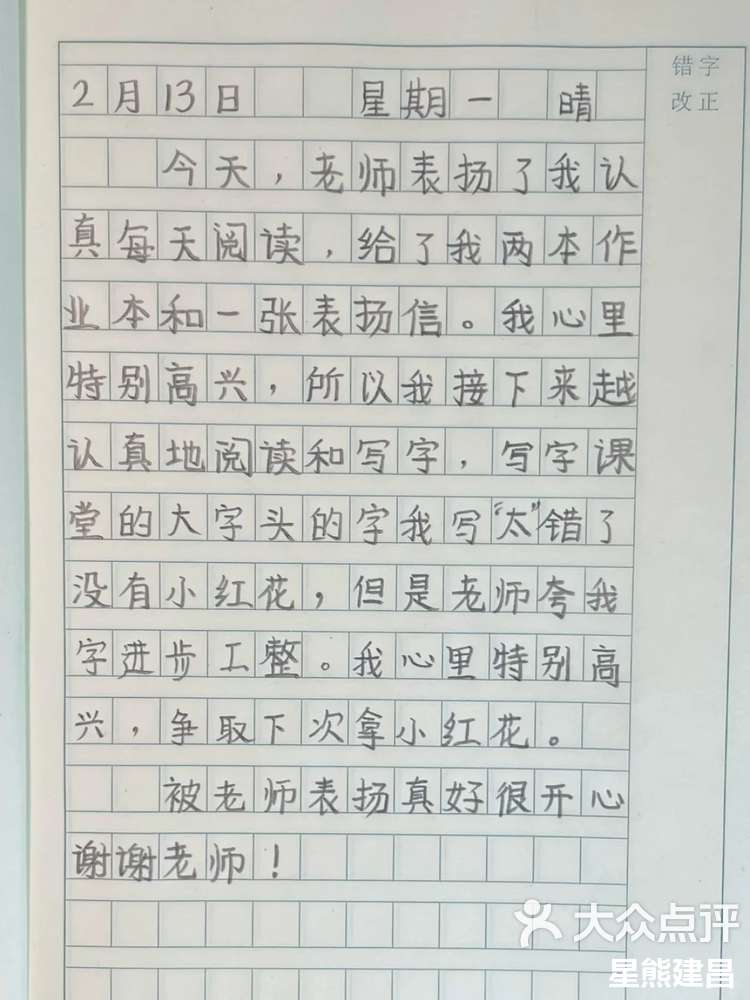 错字
改正
2月13日 星期一 晴
今天，老师表扬了我认
真每天阅读，给了我两本作
业本和一张表扬信。我心里
特别高兴，所以我接下来越
认真地阅读和写字，写字课
堂的大字头的字我写“太”错了
没有小红花，但是老师夸我
字进步工整。我心里特别高
兴，争取下次拿小红花。
被老师表扬真好很开心
谢谢老师！
大众点评
星熊建昌